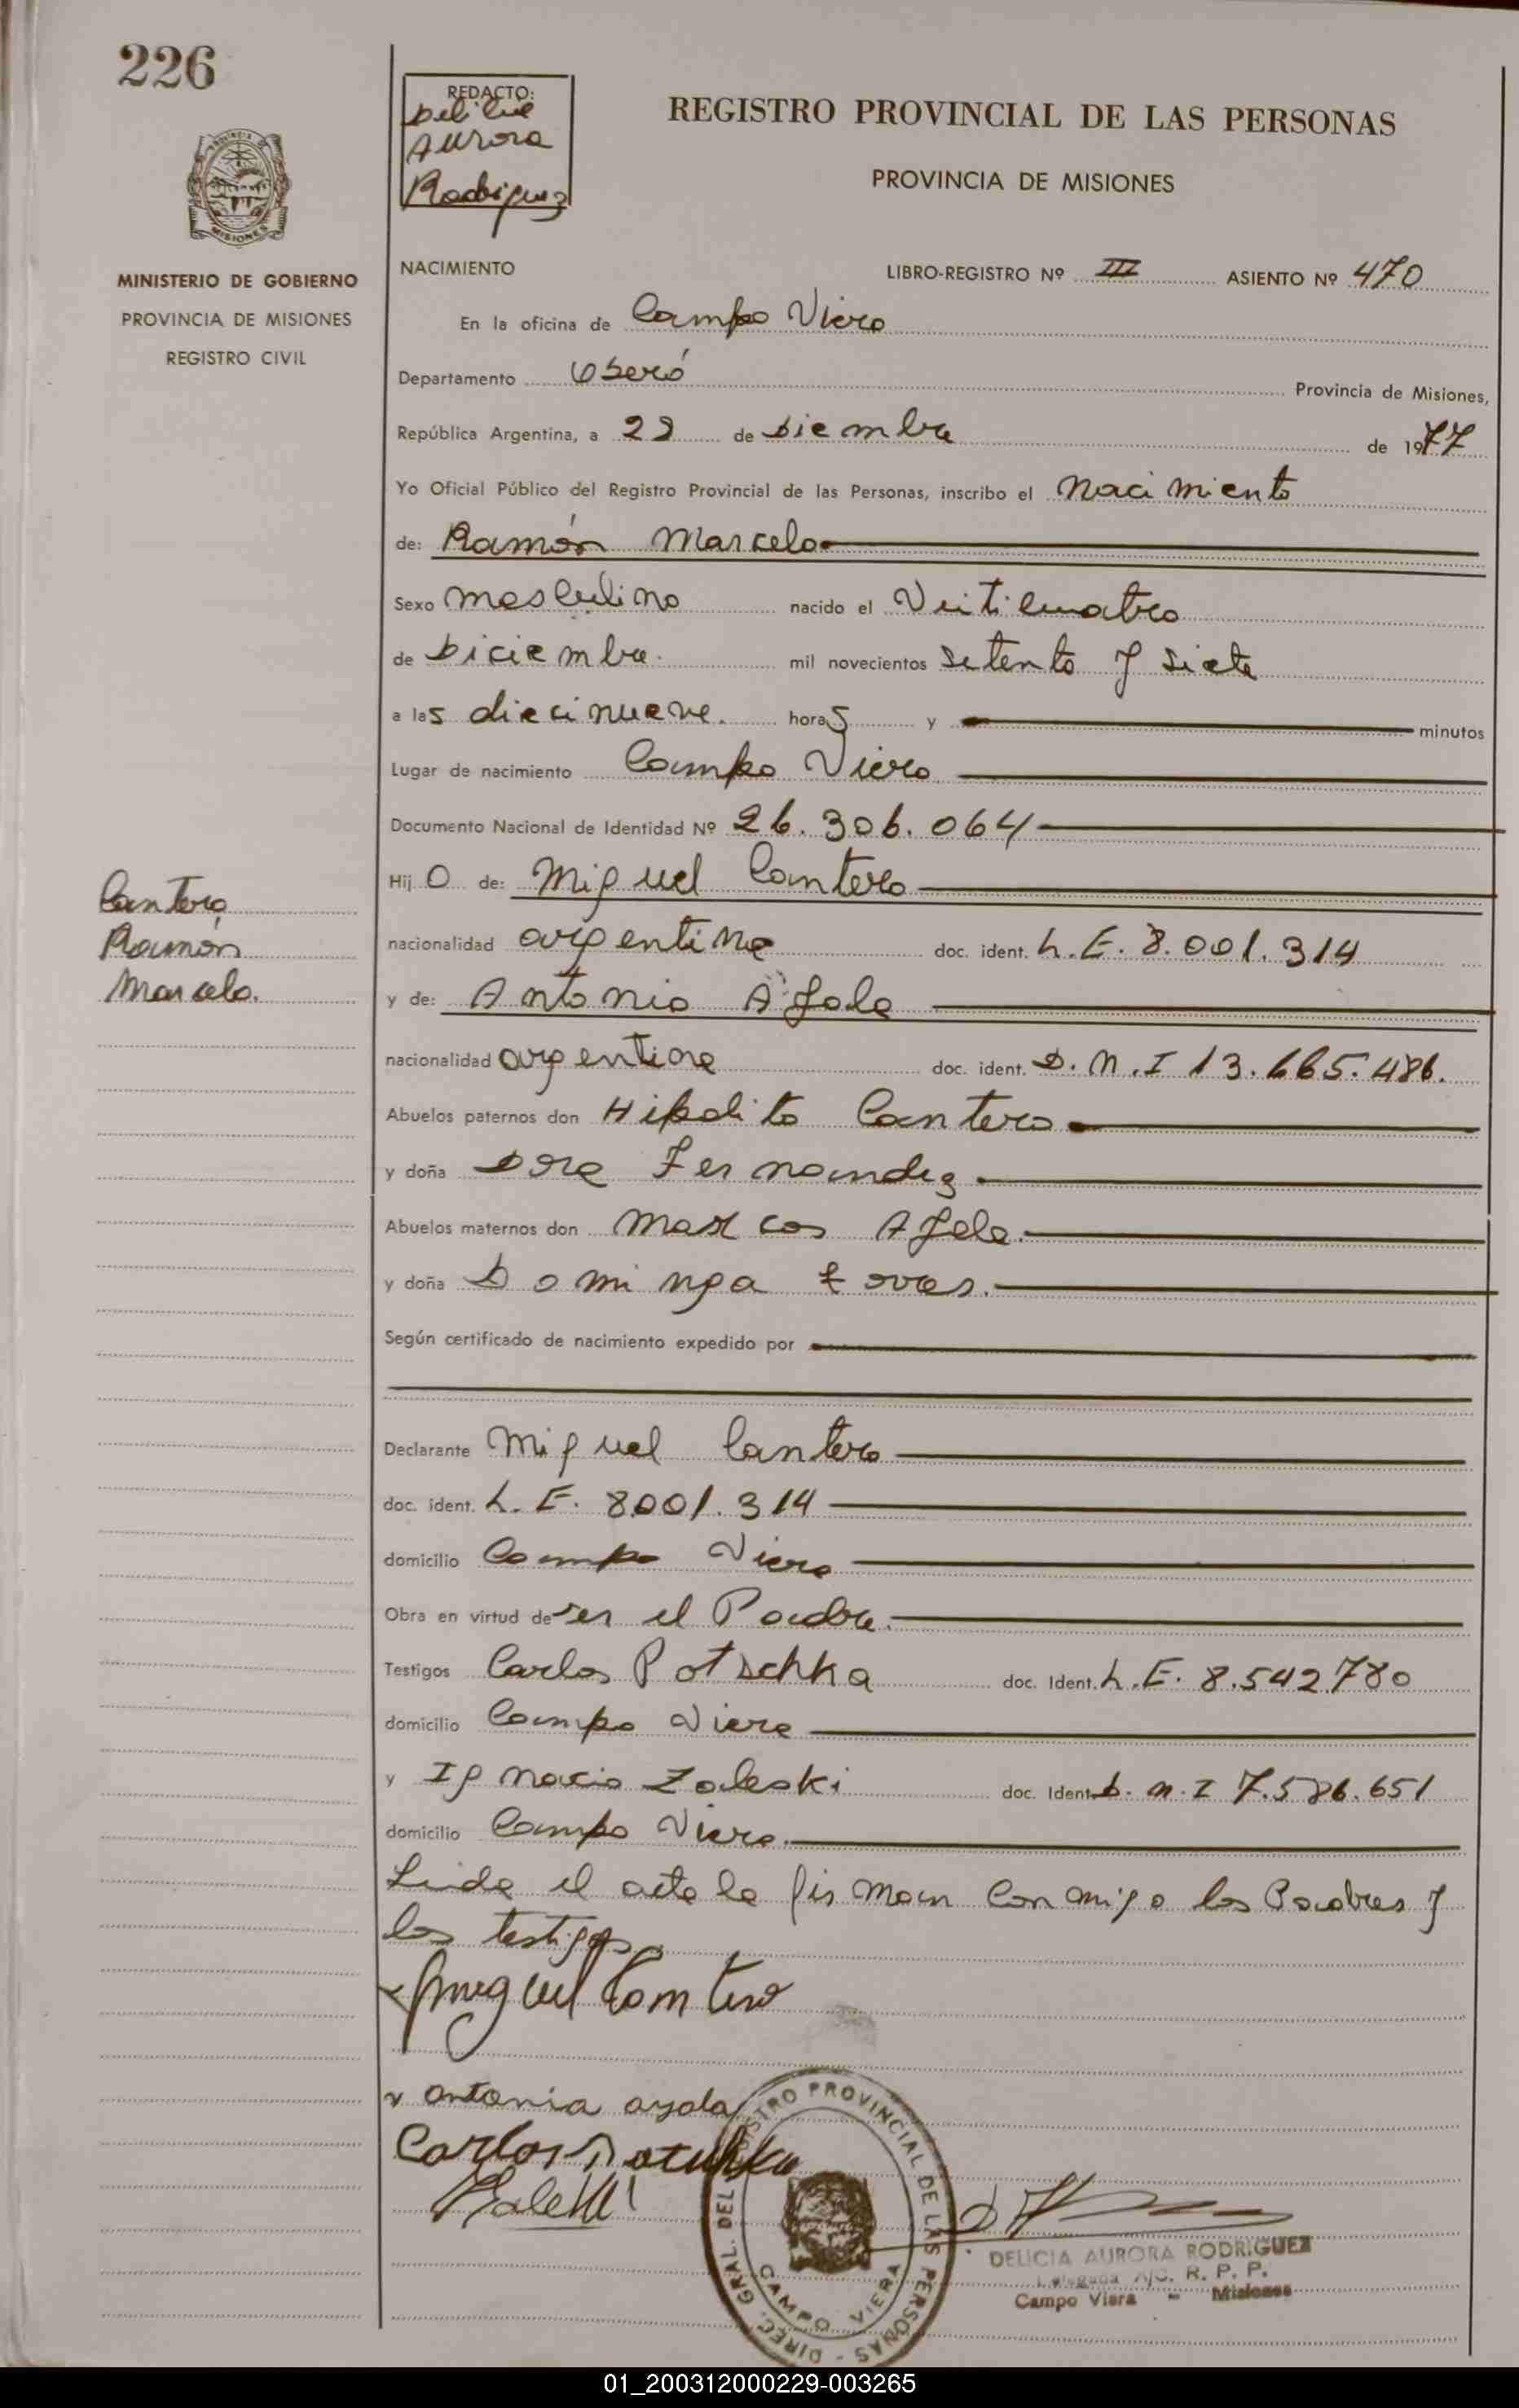 226
REDACTO:
Delicia
Aurora
Rodriguez
REGISTRO PROVINCIAL DE LAS PERSONAS
PROVINCIA DE MISIONES
MISIONES
MINISTERIO DE GOBIERNO
PROVINCIA DE MISIONES
REGISTRO CIVIL
NACIMIENTO
LIBRO-REGISTRO Nº III ASIENTO Nº 470
En la oficina de Campo Viera
Departamento Oberá Provincia de Misiones,
República Argentina, a 29 de Diciembre de 1977
Yo Oficial Público del Registro Provincial de las Personas, inscribo el Nacimiento
de: Ramón Marcelo
Sexo masculino nacido el Veiticuatro
de Diciembre. mil novecientos setenta y siete
a las diecinueve. horas y minutos
Lugar de nacimiento Campo Viera
Documento Nacional de Identidad Nº 26.306.064
Hijo de: Miguel Cantero
Cantero
Ramón
Marcelo.
nacionalidad argentina doc. ident. L.E. 8.001.314
y de: Antonia Ayala
nacionalidad argentina doc. ident. D.N.I 13.665.486.
Abuelos paternos don Hipolito Cantero
y doña Dora Fernandez
Abuelos maternos don Marcos Ayala.
y doña Dominga
Según certificado de nacimiento expedido por
Declarante Miguel Cantero
doc. ident. L.E. 8001.314
domicilio Campo Viera
Obra en virtud de ser el Padre.
Testigos Carlos Potschka doc. Ident. L.E. 8.542.780
domicilio Campo Viera
y Ignacio Zaleski doc. Ident. D.N.I 7.586.651
domicilio Campo Viera.
Leida el acta la firman conmigo los Padres y
los testigos
Miguel Cantero
Antonia ayala
Carlos Potschka
Zaleski
DIREC. GRAL. DEL REGISTRO PROVINCIAL DE LAS PERSONAS -
CAMPO VIERA
DELICIA AURORA RODRIGUEZ
Delegada A/C. R. P. P.
Campo Viera - Misiones
01_200312000229-003265